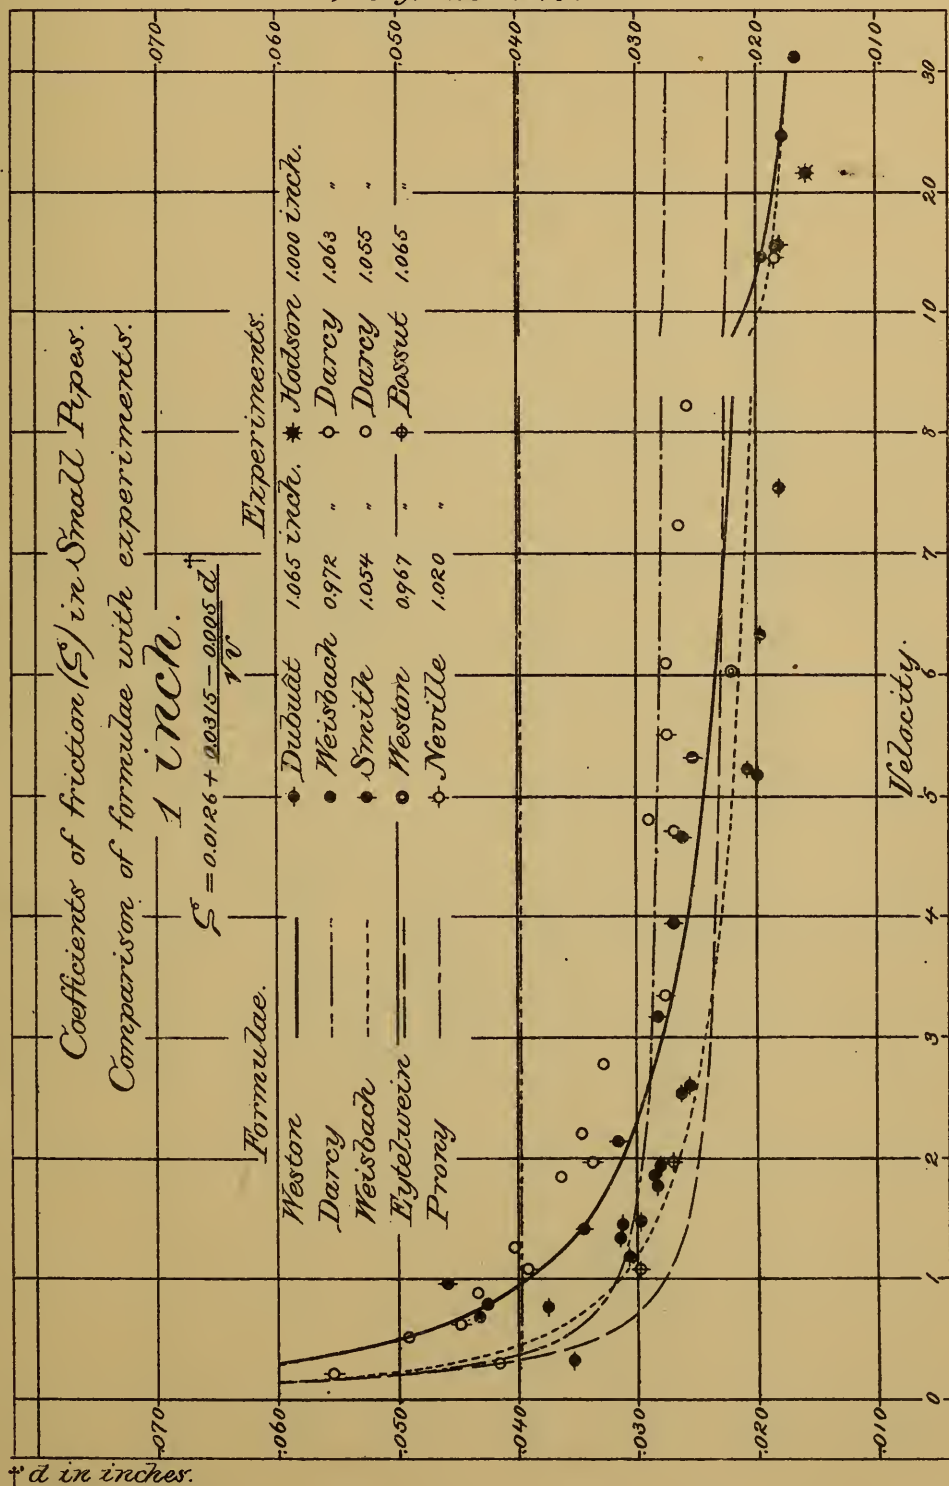 Coefficients of friction (ζ) in Small Pipes.
Comparison of formulae with experiments.
1 inch.
ζ = 0.0126 + 0.0315 - 0.005 d†
√v
Formulae.
Weston
Darcy
Weisbach
Eytelwein
Prony
Experiments.
Dubuat 1.065 inch.
Weisbach 0.972 "
Smith 1.054 "
Weston 0.967 "
Neville 1.020 "
Hodson 1.000 inch.
Darcy 1.063 "
Darcy 1.055 "
Bossut 1.065 "
.070
.060
.050
.040
.030
.020
.010
.070
.050
.040
.020
.010
0
1
2
3
4
5
6
7
8
10
20
30
Velocity.
† d in inches.